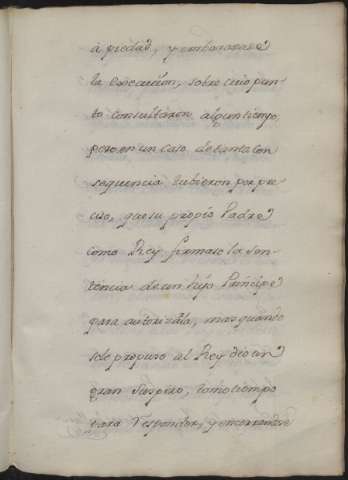 à piedad, y embarazase
la execucion, sobre cuio pun-
to consultaron algun tiempo,
pero en un caso de tanta con
sequencia tubieron por pre
ciso, que su propio Padre
como Rey firmase la Sen-
tencia de un hijo Principe
para autorizarla, mas quando
se le propuso al Rey dio un
gran suspiro, tomo tiempo
para responder, y encerrandose